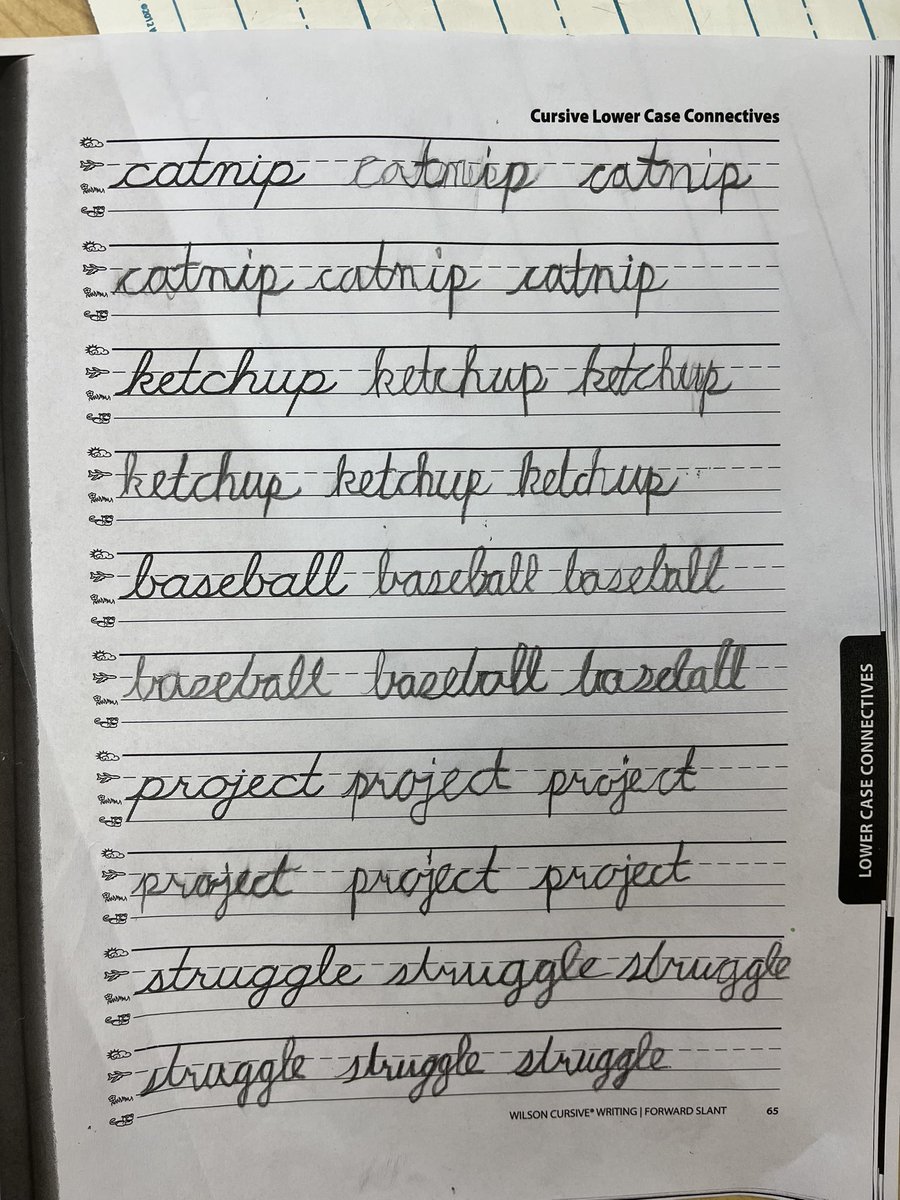 ©2021
Cursive Lower Case Connectives
catnip catnip catnip
catnip catnip catnip
ketchup ketchup ketchup
ketchup ketchup ketchup
baseball baseball baseball
baseball baseball baseball
project project project
project project project
struggle struggle struggle
struggle struggle struggle
LOWER CASE CONNECTIVES
WILSON CURSIVE® WRITING | FORWARD SLANT 65